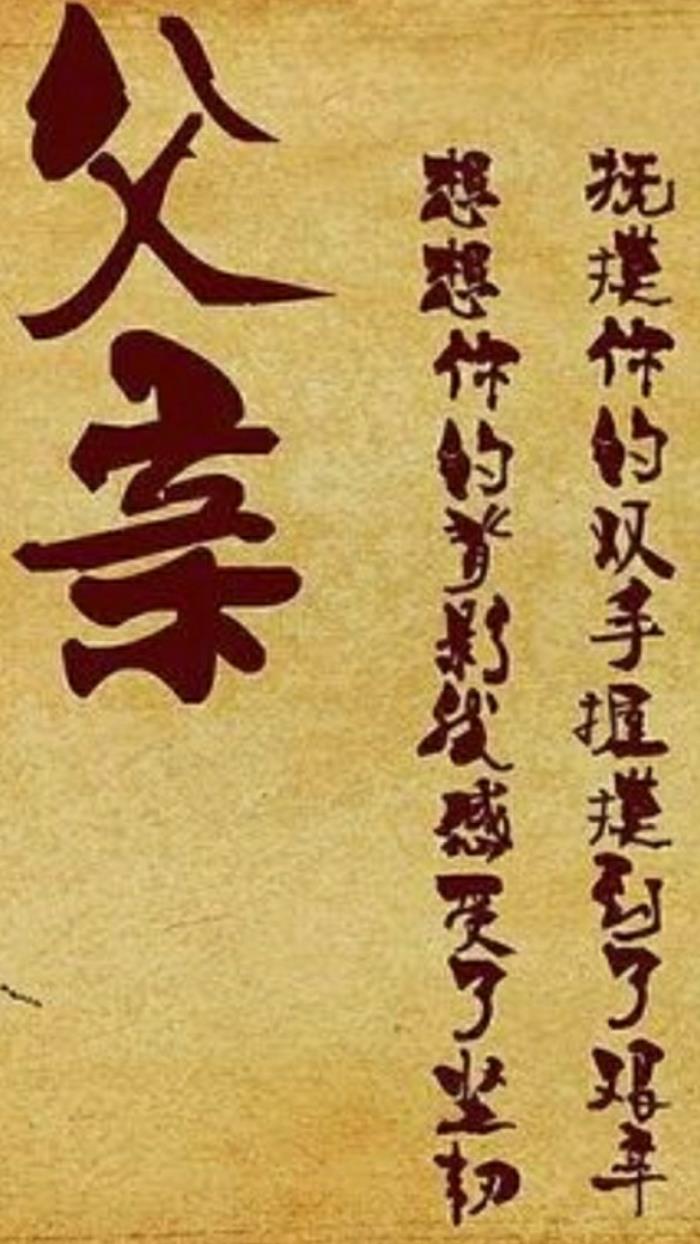 抚摸你的双手握摸到了艰辛
想想你的背影我感受了坚韧
父亲